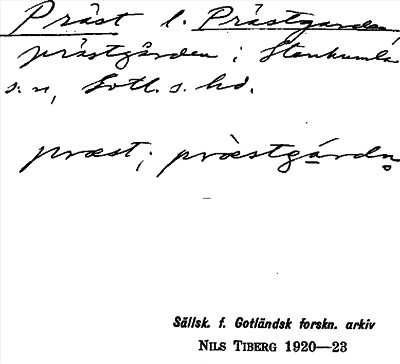 Präst l. Prästgården,
prästgården i Stenkumla
s:n, Gotl. s. hd.
præst, i præstgårdn
Sällsk. f. Gotländsk forskn. arkiv
NILS TIBERG 1920—23